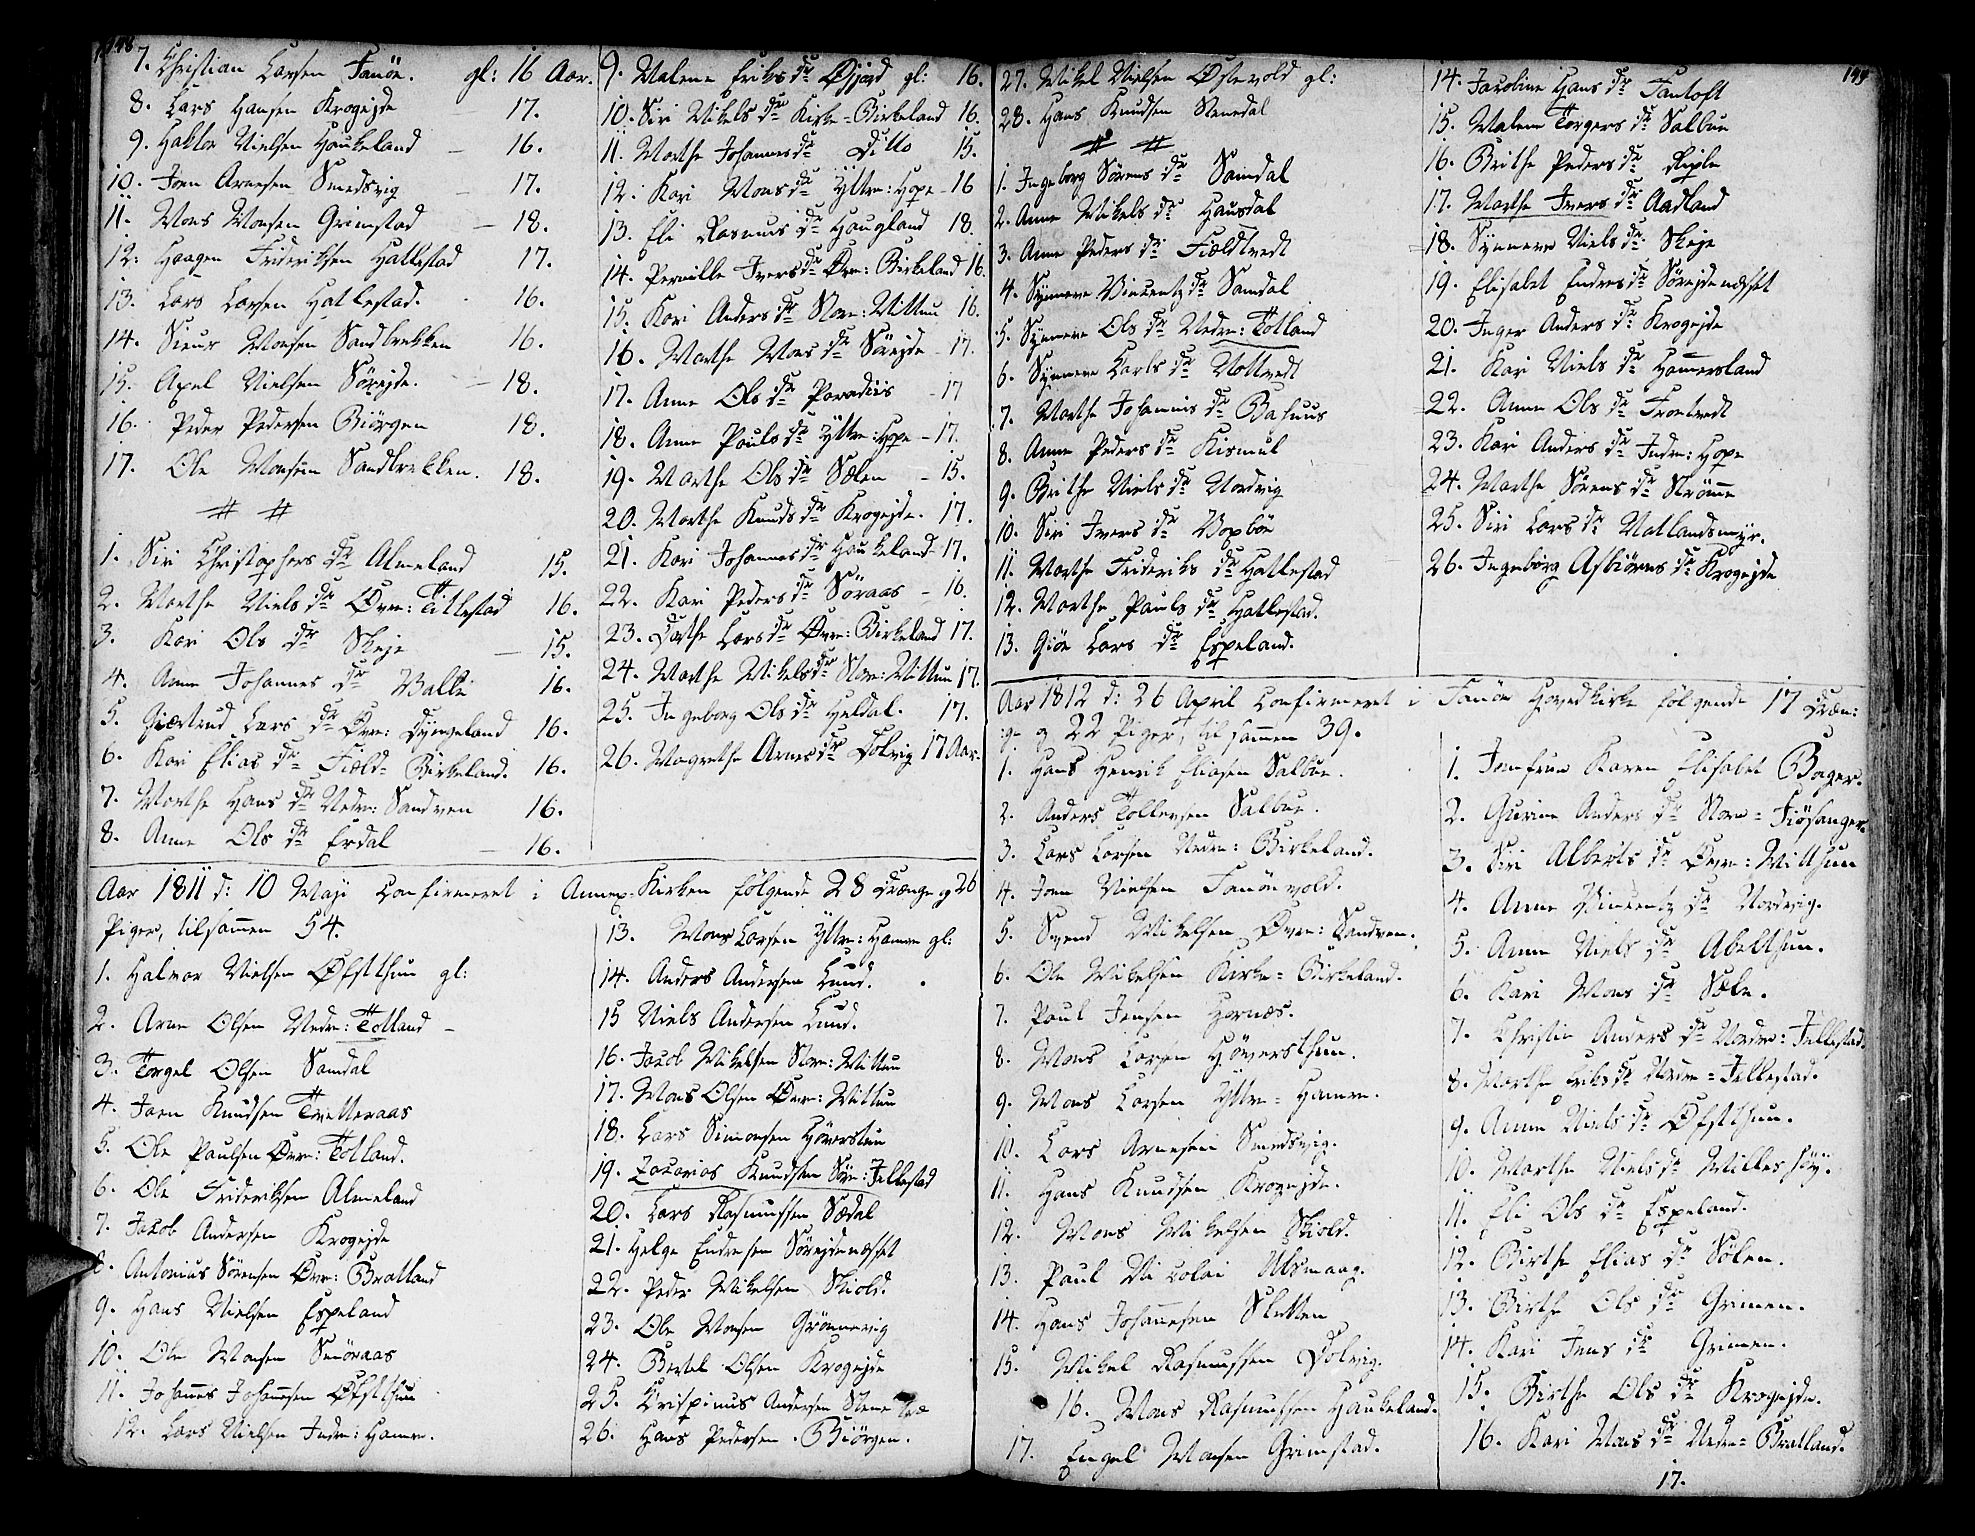 148
7. Christian Larsen Fanöe. gl: 16 Aar.
8. Lars Hansen Krogejde 17.
9. Haktor Nielsen Haukeland – 16.
10. Joen Arnesen Smedsvig – 17.
11. Mons Monsen Grimstad – 18.
12. Haagen Frideriksen Hatlestad 17.
13. Lars Larsen Hatlestad. 16.
14. Sieur Monsen Sandbrekken 16.
15. Axel Nielsen Sörejde. – 18.
16. Peder Pedersen Biörgen 18.
17. Ole Monsen Sandbrekken. 18.
1. Siri Christophers dr Almeland 15.
2. Marthe Niels dr Övr: Titlestad 16.
3. Kari Ols dr Skeje – 15.
4. Anne Johannes dr Valle 16.
5. Giertrud Lars dr Övr: Dyngeland 16.
6. Kari Elias dr Field-Birkeland. 16.
7. Marthe Hans dr Nedr: Sandven 16.
8. Anne Ols dr Erdal – 16.
9. Malene Eriks dr Ösjord gl: 16.
10. Siri Mikels dr Kirke-Birkeland 16.
11. Marthe Johannes dr Ditto 15.
12. Kari Mons dr Yttre: Hope – 16
13. Eli Rasmus dr Haugland 18.
14. Pernille Ivers dr Övr: Birkeland 16.
15. Kari Anders dr Stor: Mittun 16.
16. Marthe Mons dr Sörejde – 17.
17. Anne Ols dr Paradiis – 17
18. Anne Pouls dr Yttre: Hope – 17.
19. Marthe Ols dr Sælen – 15.
20. Marthe Knuds dr Krogejde. 17.
21. Kari Johannes dr Haukeland – 17.
22. Kari Peders dr Söraas – 16.
23. Dorthe Lars dr Övr: Birkeland 17.
24. Marthe Mikels dr Stor: Mittun 17.
25. Ingeborg Ols dr Heldal. 17.
26. Magrethe Arnes dr Dolvig 17 Aar.
Aar 1811 d: 10 Maji Confirmeret i Annex-Kirken følgende 28 Drænge og 26
Piger, tilsamen 54.
1. Halvor Nielsen Öfstthun gl:
2. Arne Olsen Nedr: Totland –
3. Torgel Olsen Samdal
4. Joen Knudsen Tvetteraas
5. Ole Paulsen Övr: Totland.
6. Ole Frideriksen Almeland
7. Jacob Andersen Krogejde
8. Antonius Sörensen Övr: Bratland
9. Hans Nielsen Espeland
10. Ole Monsen Smöraas
11. Johannes Johannesen Öfstthun
12. Lars Nielsen Indre: Hamre.
13. Mons Larsen Yttre: Hamre gl:
14. Anders Andersen Lund.
15 Niels Andersen Lund.
16. Jacob Mikelsen Stor: Mittun
17. Mons Olsen Övr: Mittun
18. Lars Simonsen Höversten
19. Zacarias Knudsen Stor: Jellestad
20. Lars Rasmussen Sædal
21. Helge Endresen Sörejdenæsset
22. Peder Mikelsen Skiold.
23. Ole Monsen Grönnevig
24. Bertel Olsen Krogejde
25. Crispinus Andersen Stene
26. Hans Pedersen Biörgen.
27. Mikel Nielsen Östevold gl:
28. Hans Knudsen Stenedal
1. Ingeborg Sörens dr Samdal
2. Anne Mikels dr Hausdal
3. Anne Peders dr Fieldtvedt
4. Synneve Vincentz dr Samdal
5. Synneve Ols dr Nedre: Totland
6. Synneve Carls dr Nottvedt
7. Marthe Johannis dr Bahuus
8. Anne Peders dr Kismul
9. Brithe Niels dr Nordvig
10. Siri Ivers dr Vopböe
11. Marthe Frideriks dr Hatlestad
12. Marthe Pauls dr Hatlestad.
13. Giöe Lars dr Espeland.
149
14. Jacobine Hans dr Fantoft
15. Malene Torgers dr Salbue
16. Brithe Peders dr Riple
17. Marthe Ivers dr Aadland
18. Synneve Niels dr Skeje
19. Elisabet Endres dr Sörejdenæsset
20. Inger Anders dr Krogejde
21. Kari Niels dr Hamersland
22. Anne Ols dr Trontvedt
23. Kari Anders dr Indre: Hope
24. Marthe Sörens dr Strömme
25. Siri Lars dr Natlandsmyr.
26. Ingeborg Asbiörns dr Krogejde
Aar 1812 d: 26 April Confirmeret i Fanöe Hovedkirke følgende 17 Dræn:
ge og 22 Piger, til sammen 39.
1. Hans Henrik Eliasen Salbue.
2. Anders Tollevsen Salbue.
3. Lars Larsen Nedre: Birkeland.
4. Joen Nielsen Fanöevold.
5. Svend Mikelsen Övre: Sandven.
6. Ole Mikelsen Kirke-Birkeland.
7. Paul Jensen Hornæs.
8. Mons Larsen Höversthun.
9. Mons Larsen Yttre-Hamre.
10. Lars Arnesen Smedsvig.
11. Hans Knudsen Krogejde.
12. Mons Mikelsen Skiold.
13. Paul Nicolai Ulsmaag.
14. Hans Johannesen Sletten
15. Mikel Rasmussen Dolvig.
16. Mons Rasmussen Haukeland.
17. Engel Monsen Grimstad.
1. Jomfrue Karen Elisabet Bager.
2. Gurine Anders dr Store-Fiösanger.
3. Siri Alberts dr Övr: Mitthun
4. Anne Vincentz dr Nordvig.
5. Anne Niels dr Abelthun.
6. Kari Mons dr Sæle.
7. Christie Anders dr Nordre: Jellestad.
8. Marthe Eriks dr Nedre-Jellestad.
9. Anne Niels dr Öfstthun.
10. Marthe Niels dr Milleshöy.
11. Eli Ols dr Espeland.
12. Birthe Elias dr Sölen.
13. Birthe Ols dr Grimen.
14. Kari Jens dr Grimen.
15. Birthe Ols dr Krogejde.
16. Kari Mons dr Nedre-Bratland.
17.